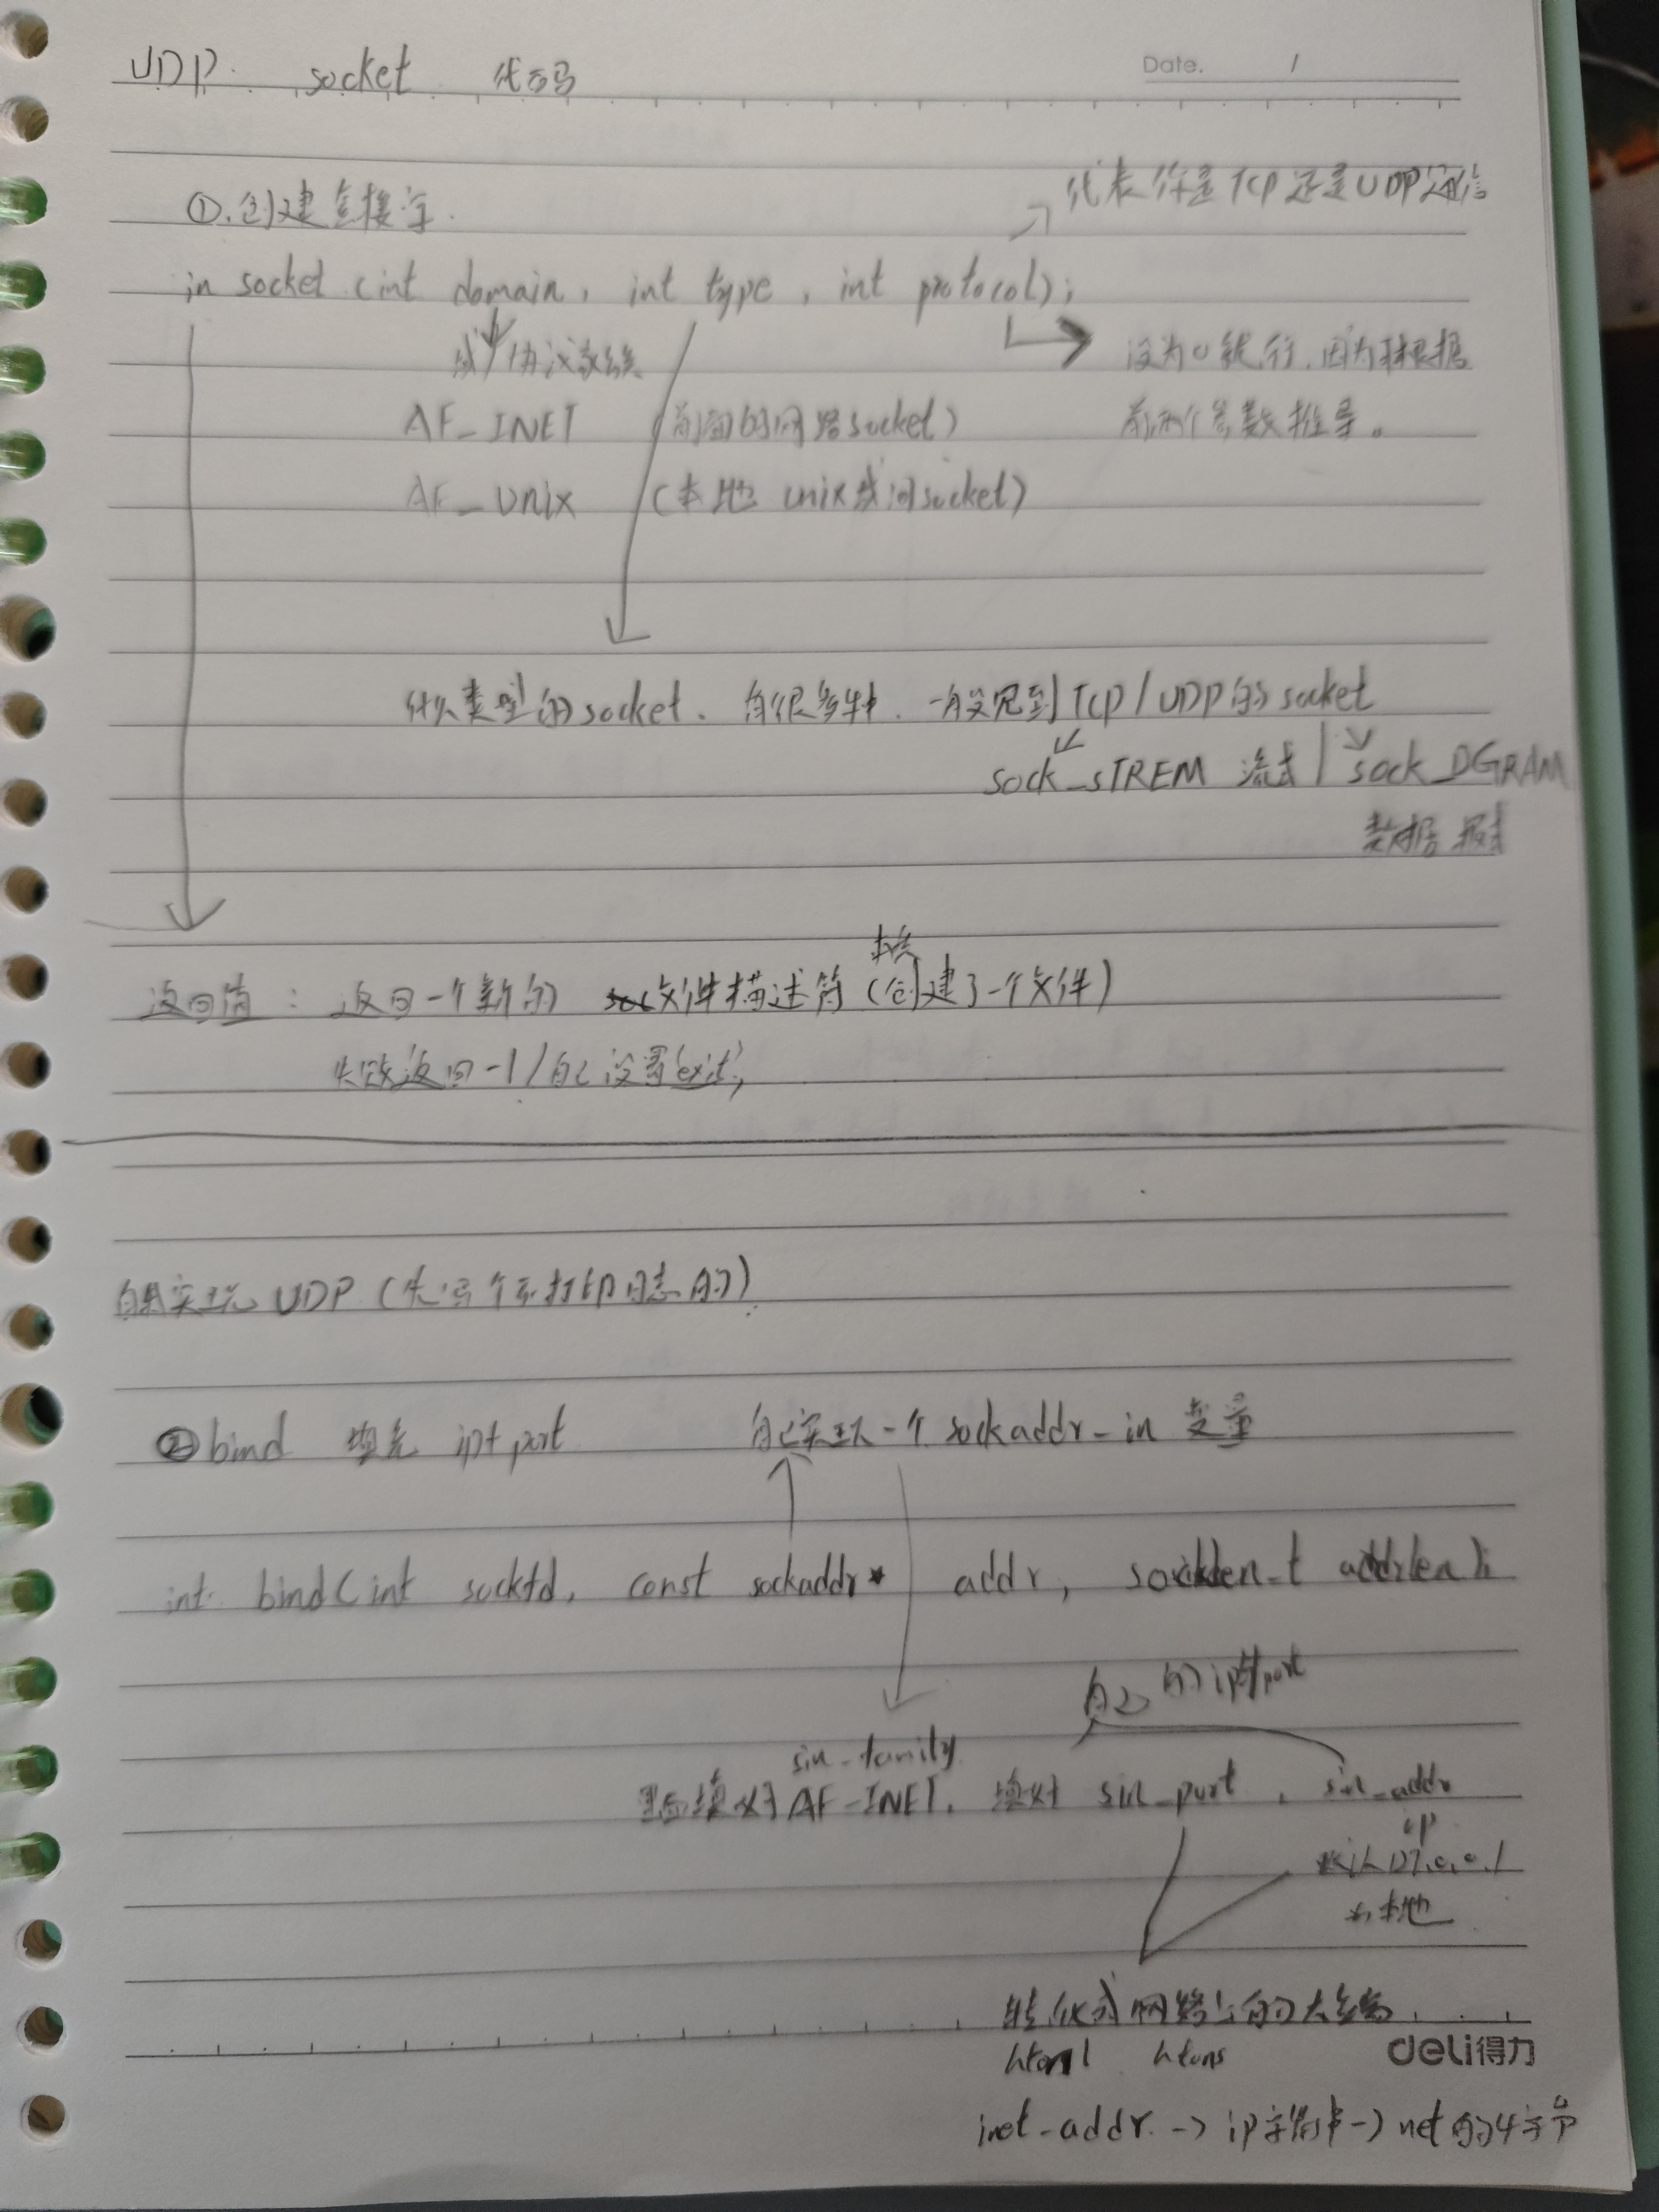 UDP. socket 代码
Date. /
代表你是TCP还是UDP通信
①.创建套接字.
in socket (int domain, int type, int protocol);
域/协议家族
设为0就行,因为我根据
AF_INET (前面的网路socket)
前两个参数推导。
AF_Unix (本地 unix域间socket)
什么类型的socket. 有很多种. 一般见到TCP/UDP的socket
sock_STREM 流式 | sock_DGRAM
数据报式
返回值: 返回一个新的 文件描述符(创建了一个文件)
失败返回-1/自己设置exit;
实现UDP(先写个打印日志的)
②bind 填充 ip+port 自己实现一个 sockaddr_in 变量
int bind(int sockfd, const sockaddr* addr, socklen_t addrlen);
自己的ip和port
sin_family
里面填对AF_INET, 填对 sin_port, sin_addr
ip
默认127.0.0.1
为本地
转化成网络上的大端
htonl htons
deli得力
inet_addr. -> ip字符串-> net的4字节